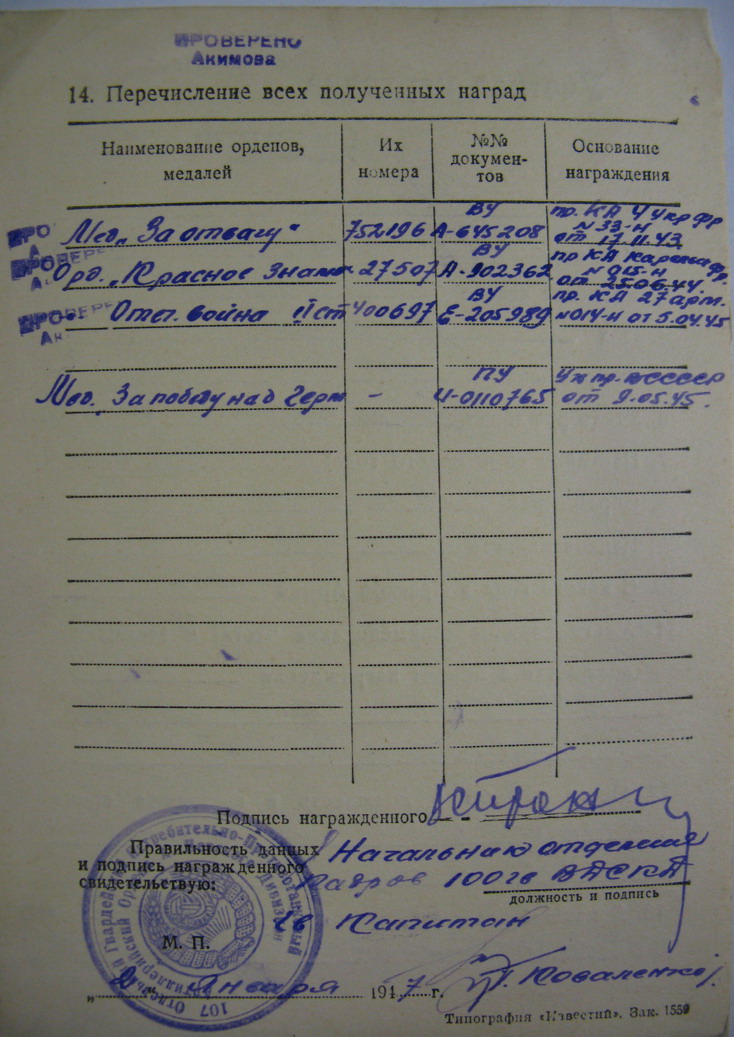 ПРОВЕРЕНО
Акимова
14. Перечисление всех полученных наград
Наименование орденов, медалей
Их номера
№№ документов
Основание награждения
Мед. „За отвагу“ 752196 ВУ А-645208 пр. КА 4 Укр фр N 33-н от 17.11.43
Орд. „Красное Знамя 27507 ВУ А-902362 пр КА Карельс фр. N 015-н от 25.06.44.
Отеч. война II ст 400697 ВУ Е-205989 пр. КА 27 арм. N 014-н от 5.04.45
Мед. За победу над Герм - ПУ И-0110765 Ук пр. ВС СССР от 9.05.45.
Подпись награжденного
Правильность данных
и подпись награжденного
свидетельствую:
Начальник отделения
Кадров 100 гв ВДСКД
должность и подпись
гв Капитан
М. П.
„2„ Января 1947 г. Коваленко
107 Отдельный Гвардейский Истребительно-Противотанковый
Типография «Известий». Зак. 1559